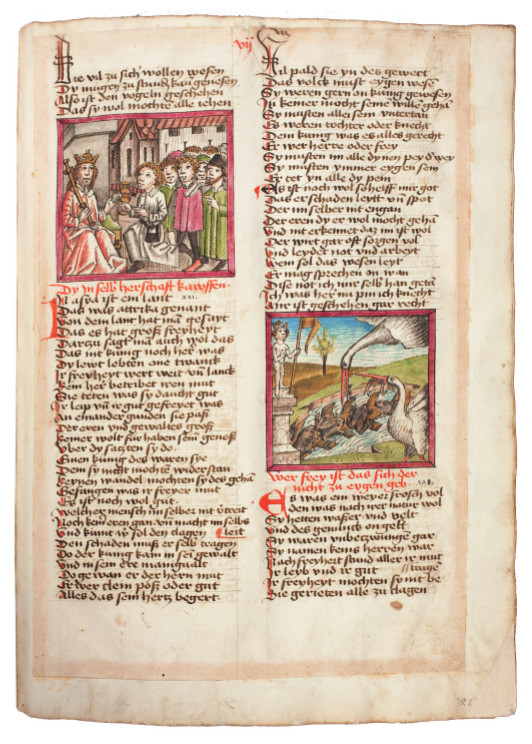 vij
Die vil zu sich wöllen wesen
Dy mugen zu stund kan genesen
Also ist den vogeln geschehen
Das sy wol mochte alle iehen
Dy in selb herschaft kawffen
In asya ist ein lant xxi
Das was attica genant
Von dem lant hat mā gesayt
Das es hat groß freyheyt
Darzu sagt mā auch wol das
Das nit kunig noch her was
Dy lowt lebten one twanck
Ir freyheyt wert weit vn lanck
Kein her betribet iren mut
Sie teten was sy daucht gut
Ir leip vn ir gut gefreyet was
An einander gunden sie paß
Der eren vnd gewaltes groß
Keiner wolt für haben sein genoß
Vber dy satzten sy do
Einen kunig des waren sye
Dem sy nicht mochte widerstan
Keynen wandel mochten sy des gehā
Gefangen was ir freyer mut
Es ist noch wol gut
Welcher mensch im selber mit vntreit
Noch kein eren gan vn macht im selbs
leit
Vnd kumt iz sol den clagen
Den schaden muß er selb tragen
Do der kunig kam in sei gewalt
Und in sein ere manigualt
Do gewan er der hern mut
Er wer clein pöß oder gut
Alles das sein hertz begert
Vil pald sie yn des gewert
Das volck must eygen wesē
Sy weren gern on kunig gewesen
Zu keiner mocht seine wille gehā
Sy musten alle sein vntertan
Es weren tochter oder knecht
Dem kunig was es alles gerecht
Er wer herre oder frey
Sy musten im alle dynen pey dwey
Sy musten ymmer eygen sein
Er tet yn alle dy pein
Als ist noch wol schelff mir got
Das er schaden leytt vn spot
Der im selber nit engan
Der eren dy er wol mocht gehā
Vnd nit erkennet daz im ist wol
Der wirt gar oft sorgen vol
Vnd leydet not vnd arbeyt
Wem sol das wesen leyt
Er mag sprechen on wan
Dise not ich mir selb han getā
Ich was her nu pin ich knecht
Mir ist geschehen gar recht
Wer frey ist das sich der
nicht zu eygen geb xxii
Es was ein weyer frosch vol
den was nach irer natur wol
Sy hetten wasser und velt
Und des genuck on gelt
Sy waren unbezwunge gar
Sy namen keins herren war
Nach freyheit stund aller ir mut
Ir leyb vnd ir gut
trage
Ir freyheyt mochten sy nit be
Sie gerieten alle zu klagen
21